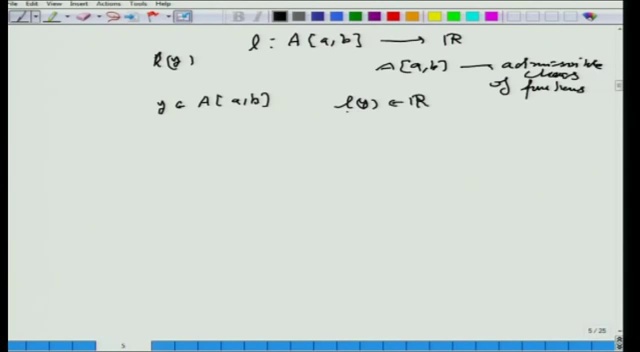 File Edit View Insert Actions Tools Help
l : A[a,b] → ℝ
l(y)
A[a,b] — admissible class of functions
y ∈ A[a,b] l(y) ∈ ℝ
5 / 25
5